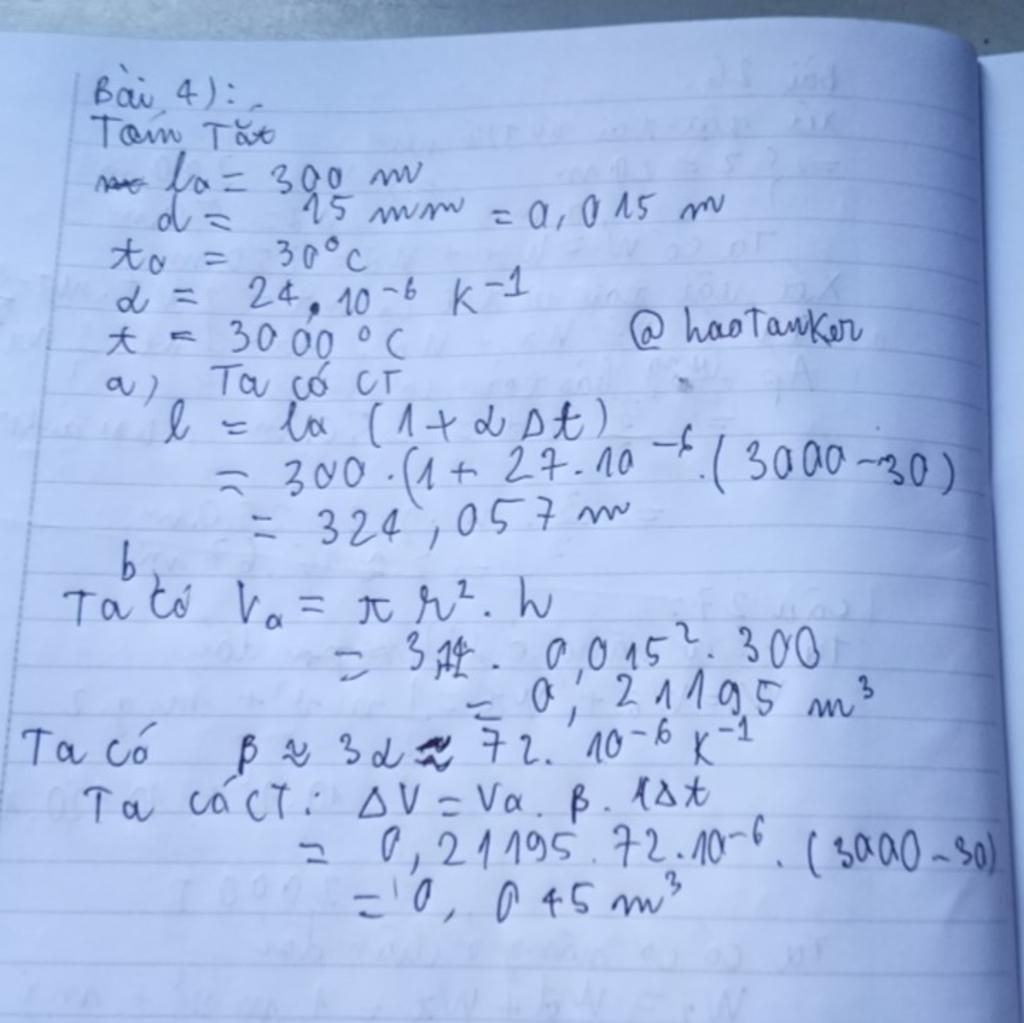 Bài 4):
Tóm Tắt
l₀ = 300 m
d = 15 mm = 0,015 m
t₀ = 30°C
α = 24.10⁻⁶ K⁻¹
t = 3000 °C
@haoTanker
a) Ta có CT
l = l₀ (1 + α Δt)
= 300.(1 + 27.10⁻⁶.(3000-30)
= 324,057 m
b
Ta có V₀ = π r². h
= 3,14. 0,015². 300
= 0,21195 m³
Ta có β ≈ 3α ≈ 72.10⁻⁶ K⁻¹
Ta có CT: ΔV = V₀. β. Δt
= 0,21195.72.10⁻⁶.(3000-30)
= 0,045 m³